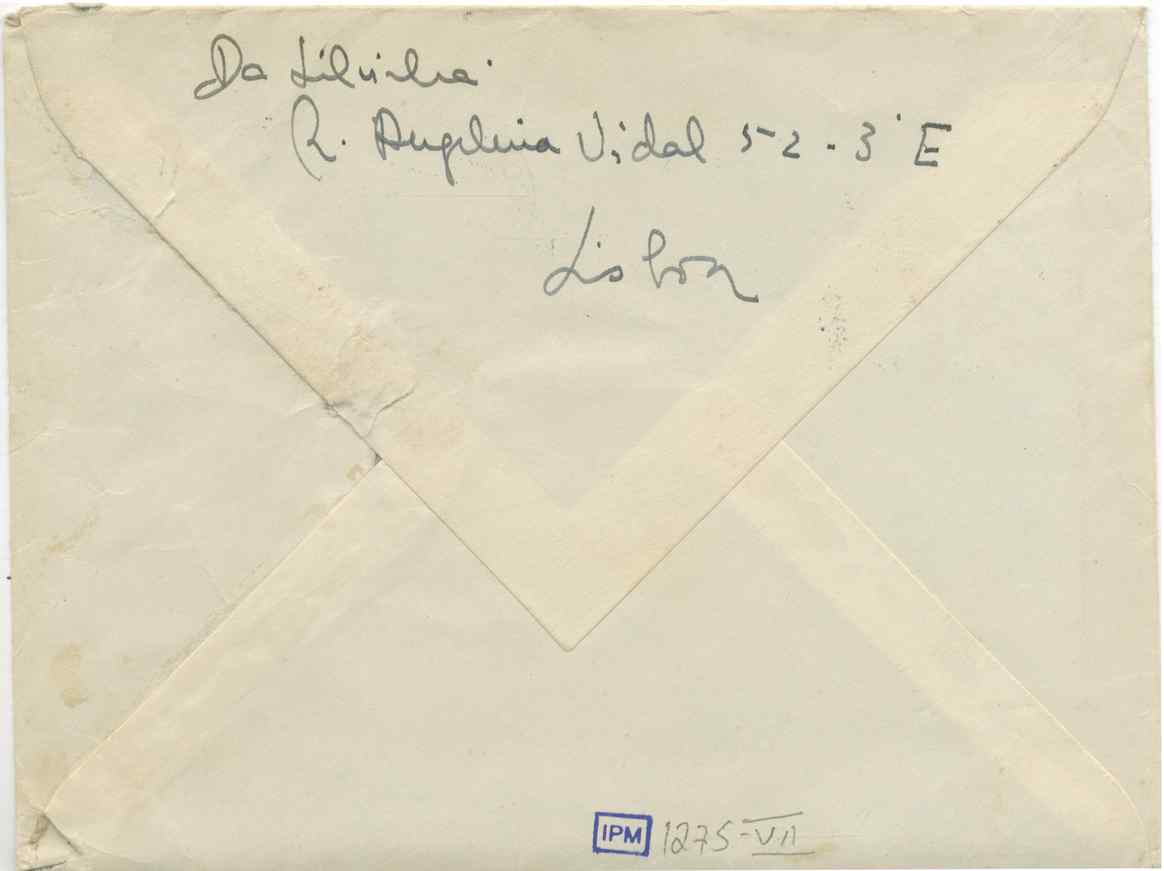 Da
R. Angelina Vidal 52-3º E
Lisboa
IPM 1275-VII